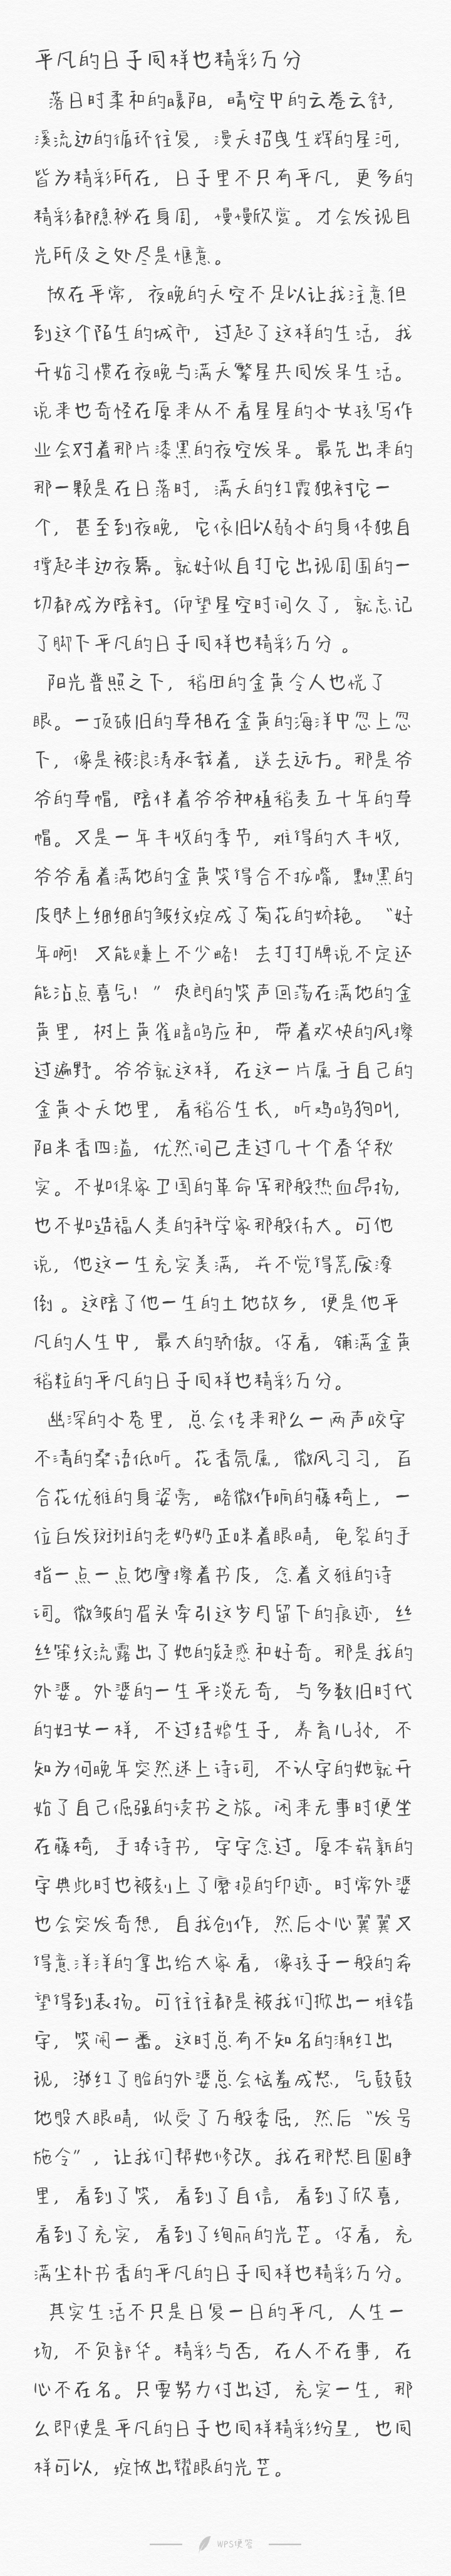 平凡的日子同样也精彩万分
落日时柔和的暖阳，晴空中的云卷云舒，
溪流边的循环往复，漫天招曳生辉的星河，
皆为精彩所在，日子里不只有平凡，更多的
精彩都隐秘在身周，慢慢欣赏。才会发现目
光所及之处尽是惬意。
放在平常，夜晚的天空不足以让我注意但
到这个陌生的城市，过起了这样的生活，我
开始习惯在夜晚与满天繁星共同发呆生活。
说来也奇怪在原来从不看星星的小女孩写作
业会对着那片漆黑的夜空发呆。最先出来的
那一颗是在日落时，满天的红霞独衬它一
个，甚至到夜晚，它依旧以弱小的身体独自
撑起半边夜幕。就好似自打它出现周围的一
切都成为陪衬。仰望星空时间久了，就忘记
了脚下平凡的日子同样也精彩万分 。
阳光普照之下，稻田的金黄令人也恍了
眼。一顶破旧的草相在金黄的海洋中忽上忽
下，像是被浪涛承载着，送去远方。那是爷
爷的草帽，陪伴着爷爷种植稻麦五十年的草
帽。又是一年丰收的季节，难得的大丰收，
爷爷看着满地的金黄笑得合不拢嘴，黝黑的
皮肤上细细的皱纹绽成了菊花的娇艳。“好
年啊！又能赚上不少略！去打打牌说不定还
能沾点喜气！”爽朗的笑声回荡在满地的金
黄里，树上黄雀暗鸣应和，带着欢快的风擦
过遍野。爷爷就这样，在这一片属于自己的
金黄小天地里，看稻谷生长，听鸡鸣狗叫，
阳米香四溢，优然间已走过几十个春华秋
实。不如保家卫国的革命军那般热血昂扬，
也不如造福人类的科学家那般伟大。可他
说，他这一生充实美满，并不觉得荒废潦
倒 。这陪了他一生的土地故乡，便是他平
凡的人生中，最大的骄傲。你看，铺满金黄
稻粒的平凡的日子同样也精彩万分。
幽深的小巷里，总会传来那么一两声咬字
不清的桑语低听。花香氛属，微风习习，百
合花优雅的身姿旁，略微作响的藤椅上，一
位白发斑班的老奶奶正咪着眼晴，龟裂的手
指一点一点地摩擦着书皮，念着文雅的诗
词。微皱的眉头牵引这岁月留下的痕迹，丝
丝笨纹流露出了她的疑惑和好奇。那是我的
外婆。外婆的一生平淡无奇，与多数旧时代
的妇女一样，不过结婚生子，养育儿孙，不
知为何晚年突然迷上诗词，不认字的她就开
始了自己倔强的读书之旅。闲来无事时便坐
在藤椅，手捧诗书，字字念过。原本崭新的
字典此时也被刻上了磨损的印迹。时常外婆
也会突发奇想，自我创作，然后小心翼翼又
得意洋洋的拿出给大家看，像孩子一般的希
望得到表扬。可往往都是被我们掀出一堆错
字，笑闹一番。这时总有不知名的潮红出
现，涨红了脸的外婆总会恼羞成怒，气鼓鼓
地股大眼睛，似受了万般委屈，然后“发号
施令”，让我们帮她修改。我在那怒目圆睁
里，看到了笑，看到了自信，看到了欣喜，
看到了充实，看到了绚丽的光芒。你看，充
满尘朴书香的平凡的日子同样也精彩万分。
其实生活不只是日复一日的平凡，人生一
场，不负韶华。精彩与否，在人不在事，在
心不在名。只要努力付出过，充实一生，那
么即使是平凡的日子也同样精彩纷呈，也同
样可以，绽放出耀眼的光芒。
WPS便签